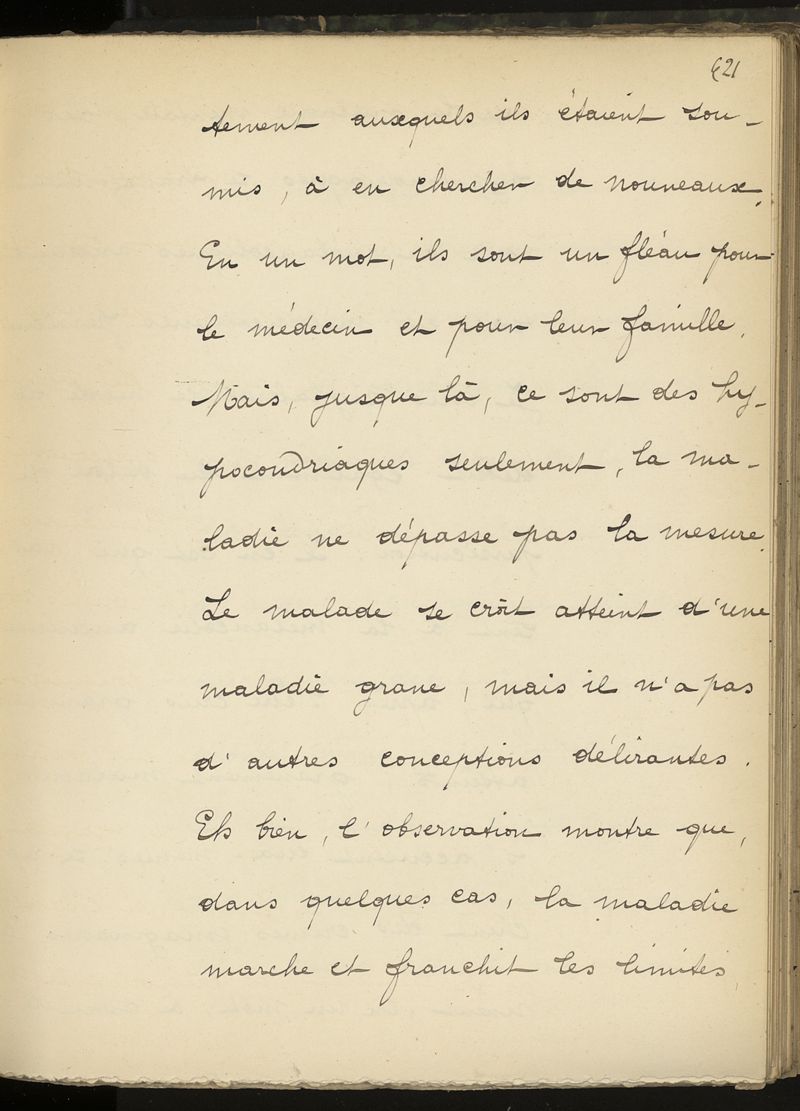 621
tement auxquels ils étaient sou-
mis, à en chercher de nouveaux.
En un mot, ils sont un fléau pour
le médecin et pour leur famille.
Mais, jusque là, ce sont des hy-
pocondriaques seulement, la ma-
ladie ne dépasse pas la mesure.
Le malade se croit atteint d'une
maladie grave, mais il n'a pas
d'autres conceptions délirantes.
Eh bien, l'observation montre que,
dans quelques cas, la maladie
marche et franchit les limites